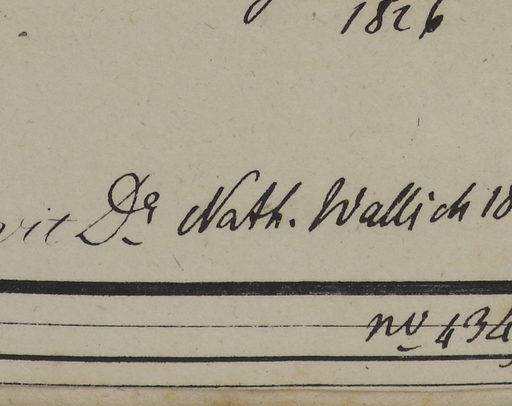 1826
vit Dr Nath. Wallich 18
no 434